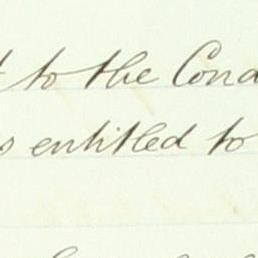 to the Cond
entitled to